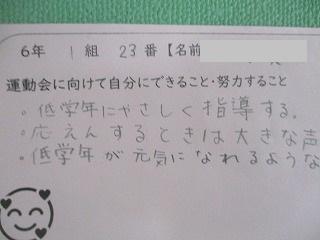 6年 1組 23番【名前
運動会に向けて自分にできること・努力すること
・低学年にやさしく指導する。
・応えんするときは大きな声
・低学年が元気になれるような